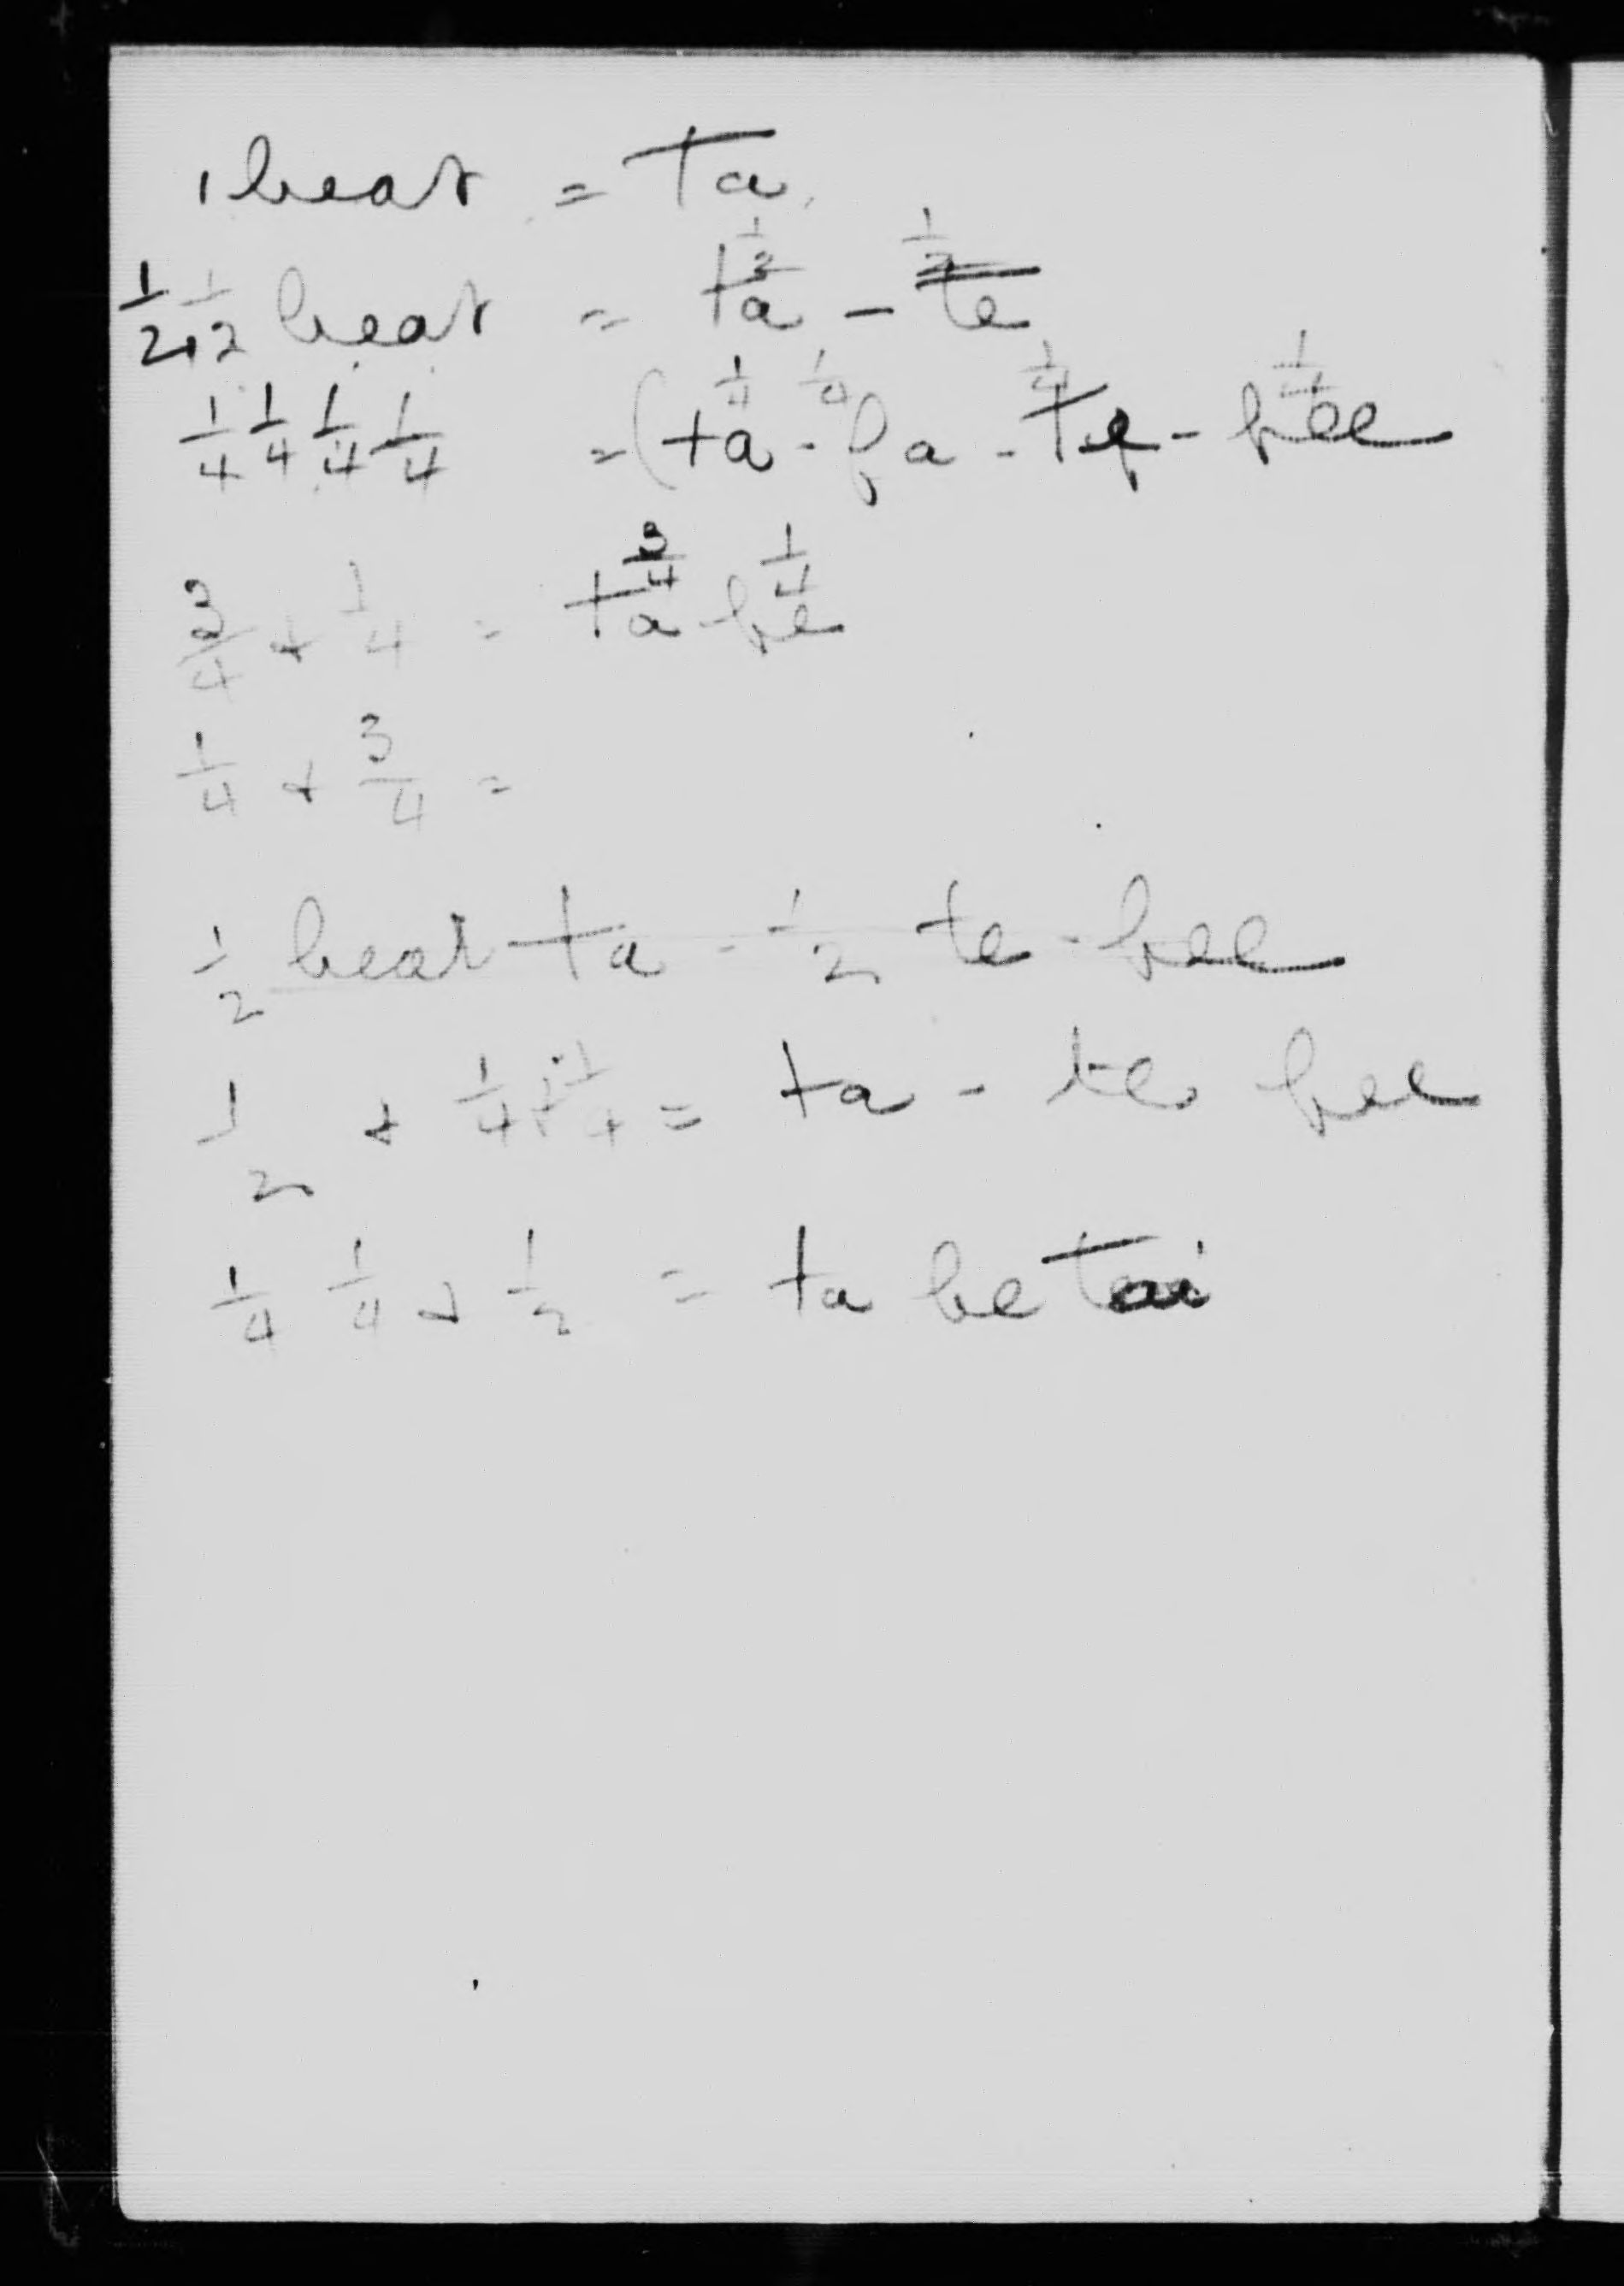 1 beat = Ta
1/2 1/2 beat = ta 1/2 - te 1/2
1/4 1/4 1/4 1/4 = (ta 1/4 - fa 1/4 - te 1/4 - fee 1/4
3/4 + 1/4 = ta 3/4 fe 1/4
1/4 + 3/4 =
1/2 beat ta - 1/2 te - fee
1/2 + 1/4 + 1/4 = ta - te fee
1/4 1/4 + 1/2 = ta be tai